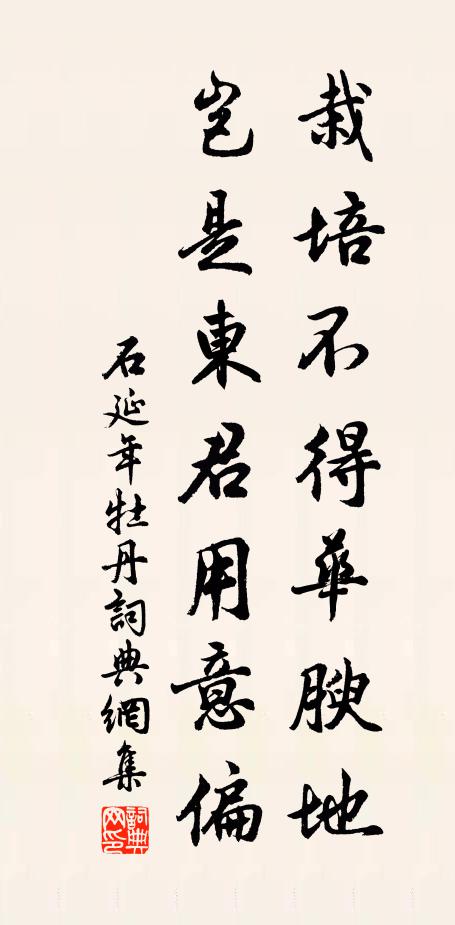 栽培不得華腴地
豈是東君用意偏
石延年牡丹詞典網集
詞典網印